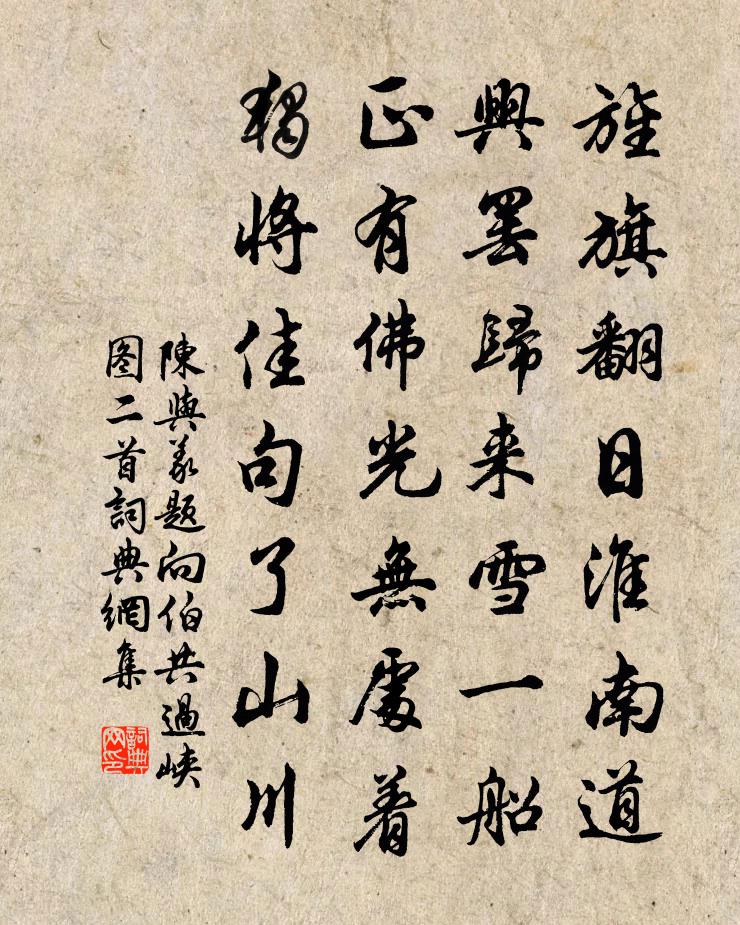 旌旗翻日淮南道
興罷歸来雪一船
正有佛光無處着
獨將佳句了山川
陳與義題向伯共過峽
图二首詞典網集
詞典網印